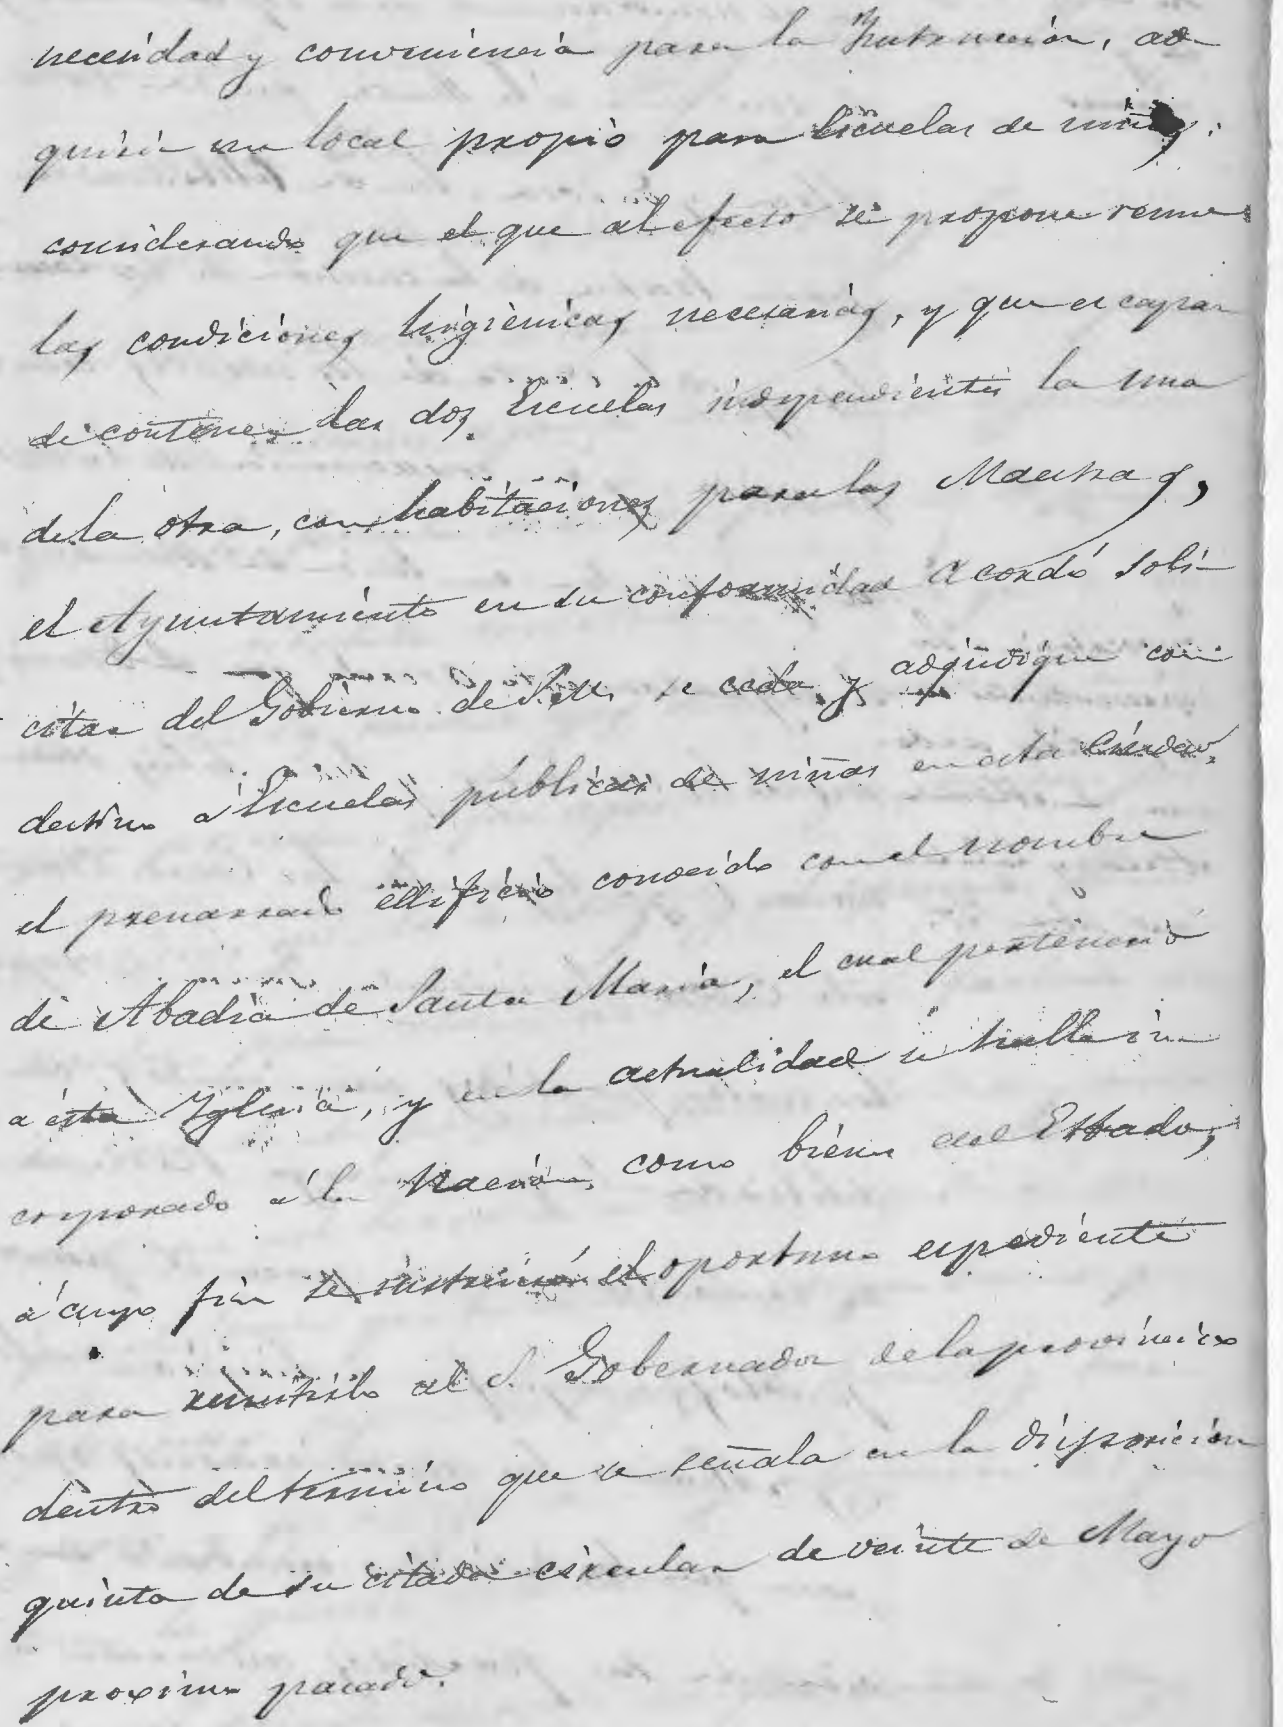 necesidad y conveniencia para la Instrucción, ad-
quirir un local propio para Escuelas de niñas:
considerando que el que al efecto se propone reune
las condiciones higiènicas necesarias, y que es capaz
de contener las dos Escuelas independientes la una
de la otra, con habitaciones para las Maestras,
el Ayuntamiento en su conformidad acordó soli-
citar del Gobierno de S.M. se ceda y adjudique con
destino á Escuelas públicas de niñas en esta Ciudad,
el prenarrado edificio conocido con el nombre
de Abadia de Santa Maria, el cual perteneció
a ésta Yglesia, y en la actualidad se halla in-
corporado á la Nación, como bienes del Estado,
á cuyo fin se instruirá el oportuno espediente
para remitirlo al S. Gobernador de la provincia
dentro del termino que se señala en la disposicion
quinta de su citada circular de veinte de Mayo
proximo pasado.